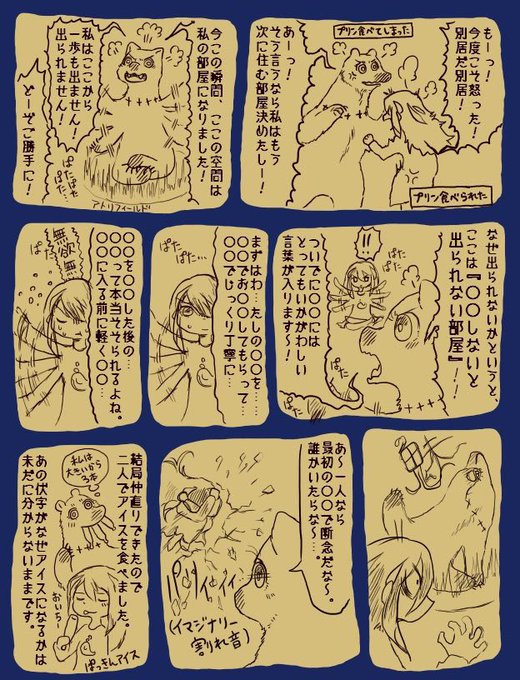 もーっ！
今度こそ怒った！
別居だ別居！
プリン食べてしまった
あーっ！
そう言うなら私はもう
次に住む部屋決めたしー！
プリン食べられた
今この瞬間、ここの空間は
私の部屋になりました！
私はここから
一歩も出ません！
出られません！
どーぞご勝手に！
ぱたぱた
ぱたぱた…
アメリフィールド
なぜ出られないかというと、
ここは『〇〇しないと
出られない部屋』！！
ついでに〇〇には
とってもいかがわしい
言葉が入ります〜！
!!
ぱた
ぱた
ぱた
ぱた…
まずはわ…たしの〇〇を…
〇〇でお〇〇してもらって…
〇〇でじっくり丁寧に…
〇〇を〇〇した後の…
〇〇〇って本当そそられるよね。
〇〇に入る前に軽く〇〇…
無欲無
ぱた
あ〜一人なら
最初の〇〇で断念だな〜。
誰かいたらな〜…。
パリィィィィン
(イマジナリー
割れ音)
結局仲直りできたので
二人でアイスを食べました。
あの伏字がなぜアイスになるかは
未だに分からないままです。
私は
大きいから
3本
おいちー
ぱっきんアイス